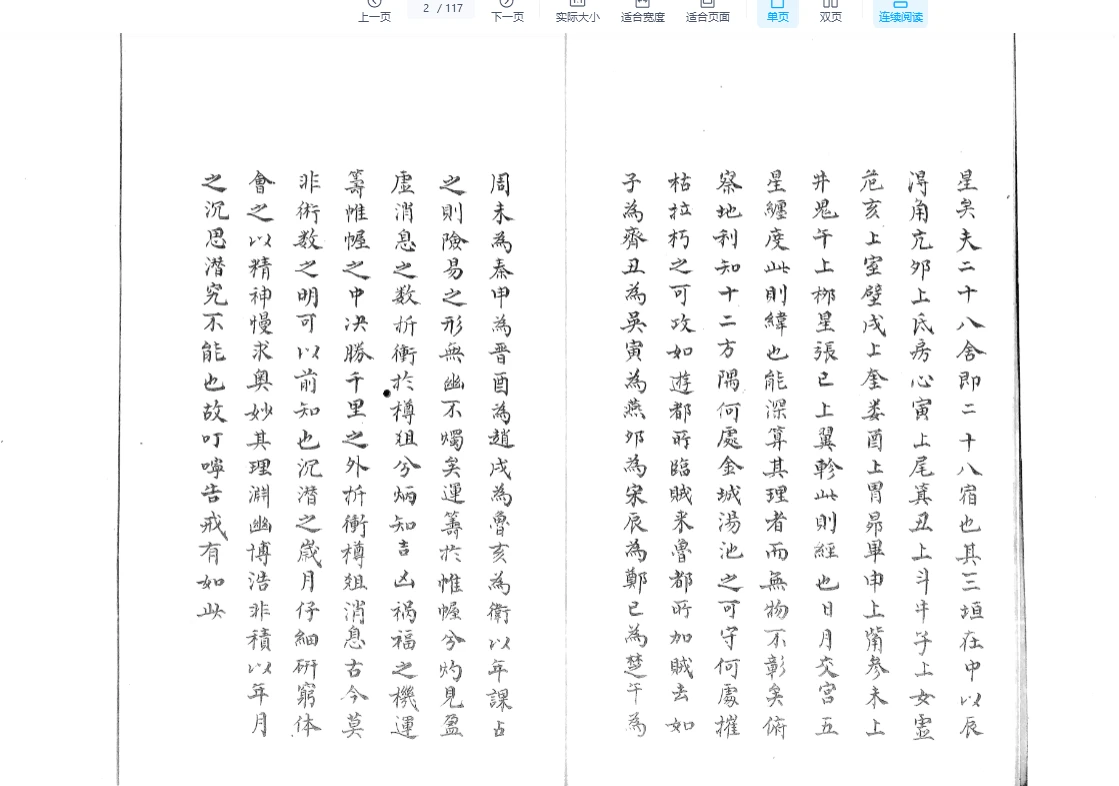 上一页
2 / 117
下一页
实际大小
适合宽度
适合页面
单页
双页
连续阅读
星矣夫二十八舍即二十八宿也其三垣在中以辰
淂角亢夘上氐房心寅上尾箕丑上斗牛子上女虚
危亥上室壁戌上奎娄酉上胃昴畢申上觜参未上
井鬼午上栁星張巳上翼軫此則經也日月交宮五
星纏度此則緯也能深算其理者而無物不彰矣俯
察地利知十二方隅何處金城湯池之可守何處摧
枯拉朽之可攻如遊都所臨賊来魯都所加賊去如
子為齊丑為吳寅為燕夘為宋辰為鄭巳為楚午為
周未為秦申為晋酉為趙戌為魯亥為衛以年課占
之則險易之形無幽不燭矣運籌於惟幄兮灼見盈
虛消息之数折衝於樽俎兮炳知吉凶禍福之機運
籌帷幄之中决勝千里之外折衝樽俎消息古今莫
非術数之明可以前知也沉潜之歲月仔細研窮体
會之以精神慢求奥妙其理淵幽博浩非積以年月
之沉思潜究不能也故叮嚀告戒有如此